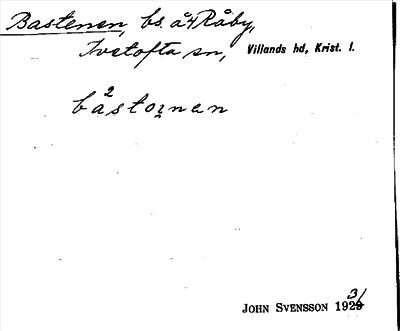 Bastenen, bs. å Råby,
Ivetofta sn, Villands hd, Krist. l.
bå²stoı̥nan
JOHN SVENSSON 1931